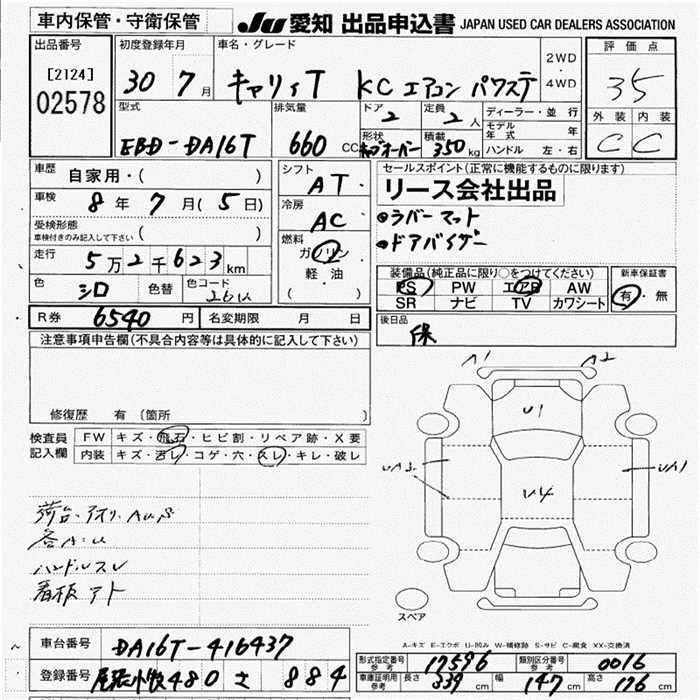 車内保管・守衛保管 JU 愛知 出品申込書 JAPAN USED CAR DEALERS ASSOCIATION
出品番号 初度登録年月 車名・グレード 2WD ・ 4WD 評価点
[2124] 02578 30 7月 キャリイT KC エアコン パワステ 35
型式 排気量 ドア 2 定員 2人 ディーラー・並行 外装 内装
モデル年式 年
EBD-DA16T 660 CC 形状 積載 350kg ハンドル 左・右 C C
車歴 自家用・( ) シフト AT セールスポイント(正常に機能するものに限ります)
リース会社出品
車検 8年 7月(5日) 冷房 AC ラバーマット
受検形態 車検付きのみ記入して下さい ( ) 燃料 ガソリン ドアバイザー
走行 5万2千623km 軽油
( )
装備品(純正品に限り○をつけてください) 新車保証書
PS PW エアB AW 有・無
SR ナビ TV カワシート
色 シロ 色替 色コード 26U
R券 6540円 名変期限 月 日 後日品
保
注意事項申告欄(不具合内容等は具体的に記入して下さい)
修復歴 有 [箇所 ]
検査員記入欄 FW キズ・飛石・ヒビ割・リペア跡・X要
内装 キズ・汚レ・コゲ・穴・スレ・キレ・破レ
A1 A2
U1
UA3 U4 UA1
荷台・アオリ・AUS
各A・U
ハンドルスレ
看板アト
スペア
A-キズ E-エクボ U-凹み W-補修跡 S-サビ C-腐食 XX-交換済
車台番号 DA16T-416437
型式指定番号 参考 17596 類別区分番号 参考 0016
登録番号 尾張小牧 480 さ 884
車庫証明用 参考 長さ 339cm 幅 147cm 高さ 176cm